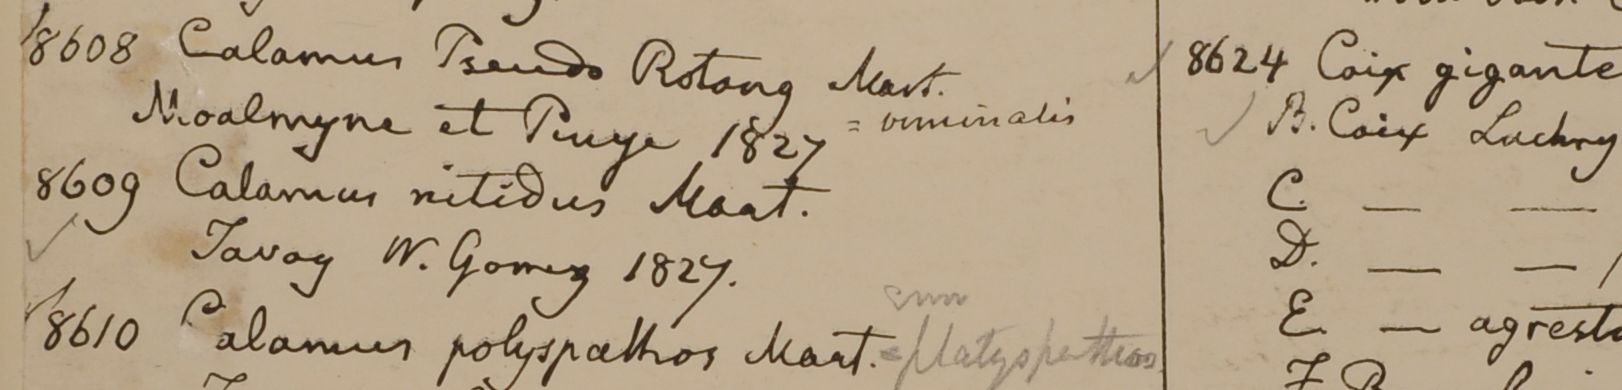 8608 Calamus Pseudo Rotang Mart.
Moalmyne et Puge 1827 = viminalis
8609 Calamus nitidus Maat.
Tavoy W. Gomez 1827.
8610 Calamus polyspathos Maat. = platyspathos
8624 Coix gigante
B. Coix Lachry
C. — —
D. — —
E. — agrest